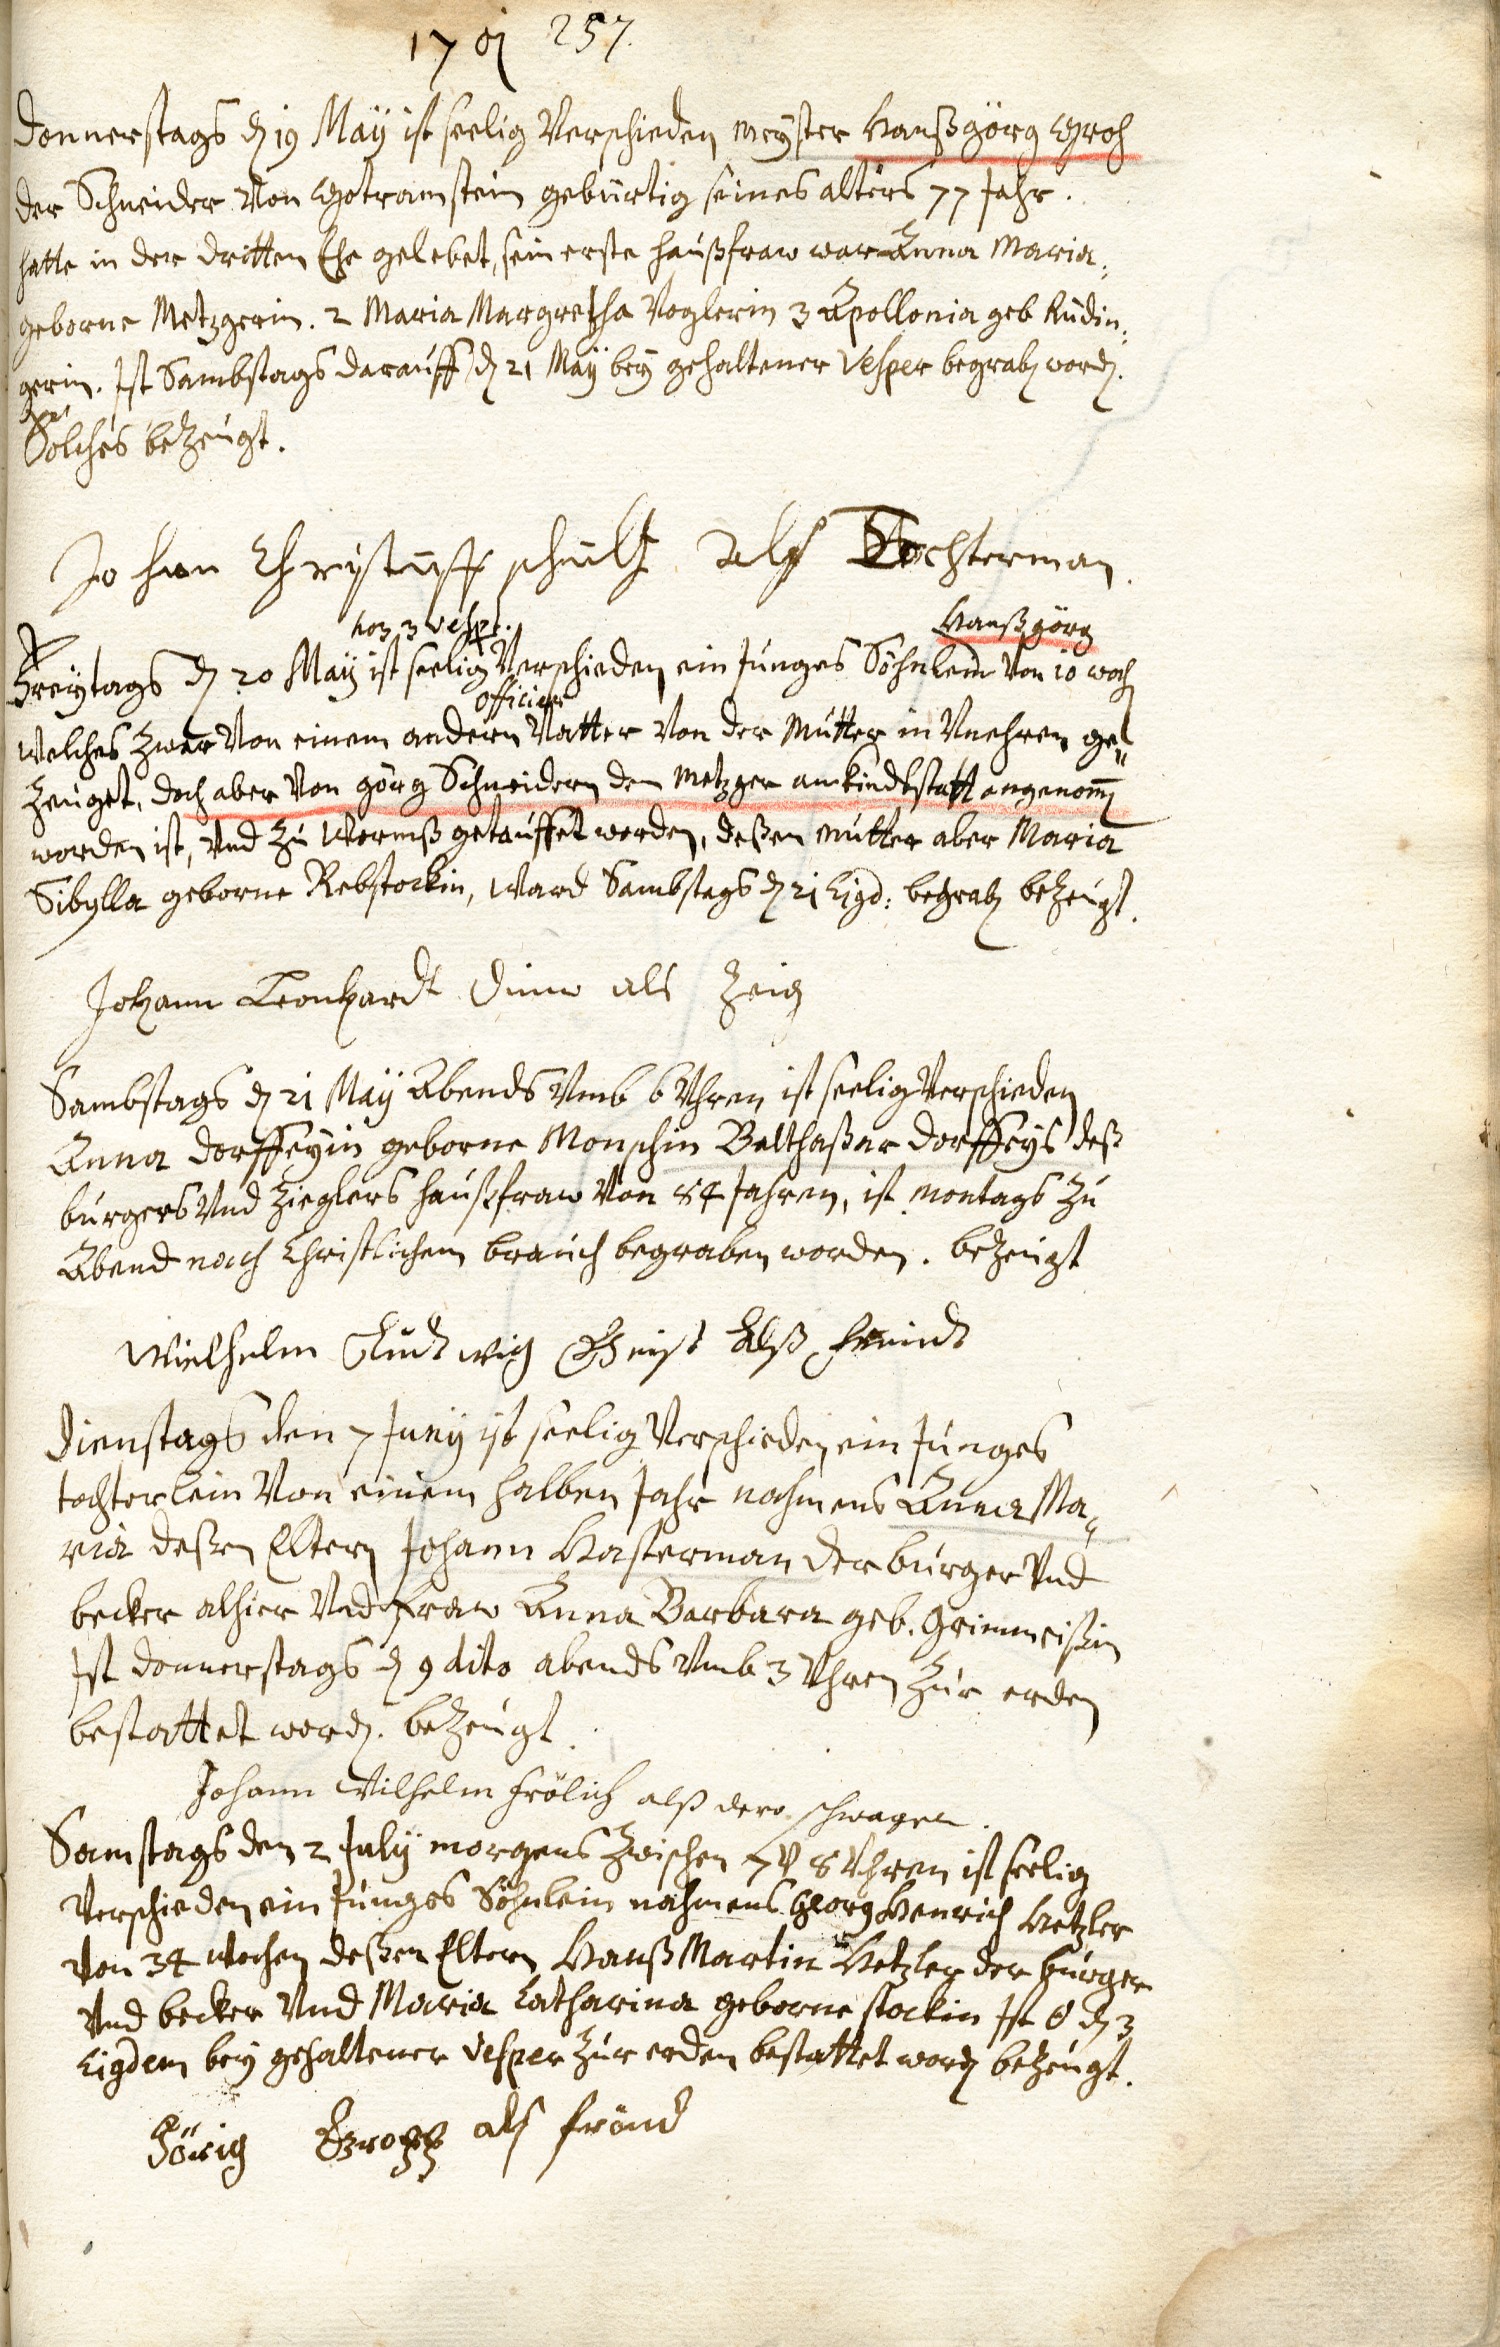 1701 257.
Donnerstags d 19 Maÿ ist seelig Verschieden meyster Hanß görg Groh
der Schneider Von Gotramstein gebürtig seines alters 77 Jahr.
hatte in der dritten Ehe gelebet, sein erste haußfraw war Anna Maria
geborne Metzgerin. 2 Maria Margretha Voglerin 3 Apollonia geb Rüdin-
gerin. Ist Sambstags darauff d 21 Maÿ beÿ gehaltener Vesper begrab word.
Solches bezeugt.
Johan Christuff schultz Als Tochterman.
hor. 3 Vesp. Hanß görg
Freÿtags d 20 Maÿ ist seelig Verschieden ein Junges Söhnlein Von 10 woch
officier
welches zwar Von einem andern Vatter Von der Mutter in Vnehren ge-
zeuget, doch aber Von görg Schneidern dem Metzger an kindtstatt angenom
worden ist, Vnd zu Wormß getauffet worden, deßen mutter aber Maria
Sibylla geborne Rebstockin, Ward Sambstags d 21 Eigd: begrab bezeugt.
Johann Leonhardt als Zeig
Sambstags d 21 Maÿ Abends Vmb 6 Vhren ist seelig Verschieden
Anna Dorffeÿin geborne Monschin Balthaßar Dorffeÿs deß
burgers Vnd Zieglers haußfraw Von 54 Jahren, ist Montags zu
Abend nach Christlichem brauch begraben worden. bezeugt
Wielhelm Ludtwig Geist Alß freindt
Dienstags den 7 Junÿ ist seelig Verschieden ein Junges
tochterlein Von einem halben Jahr nahmens Anna Ma-
ria deßen Eltern Johann Hasterman der burger Vnd
becker alhier Vnd fraw Anna Barbara geb. Grimmeißin
Ist Donnerstags d 9 dito abends Vmb 3 Vhren zur erden
bestattet word. bezeugt.
Johann Wilhelm Frölich alß dero schwager.
Samstags den 2 Julÿ morgens zwischen 7 V 8 Vhren ist seelig
Verschieden ein Junges Söhnlein nahmens Georg Henrich Hetzler
Von 34 wochen deßen Eltern Hanß Martin Hetzler der burger
Vnd becker Vnd Maria Catharina geborne Stockin Ist d 3
Eigdem beÿ gehaltener Vesper zur erden bestattet word bezeugt.
Görig als frönd